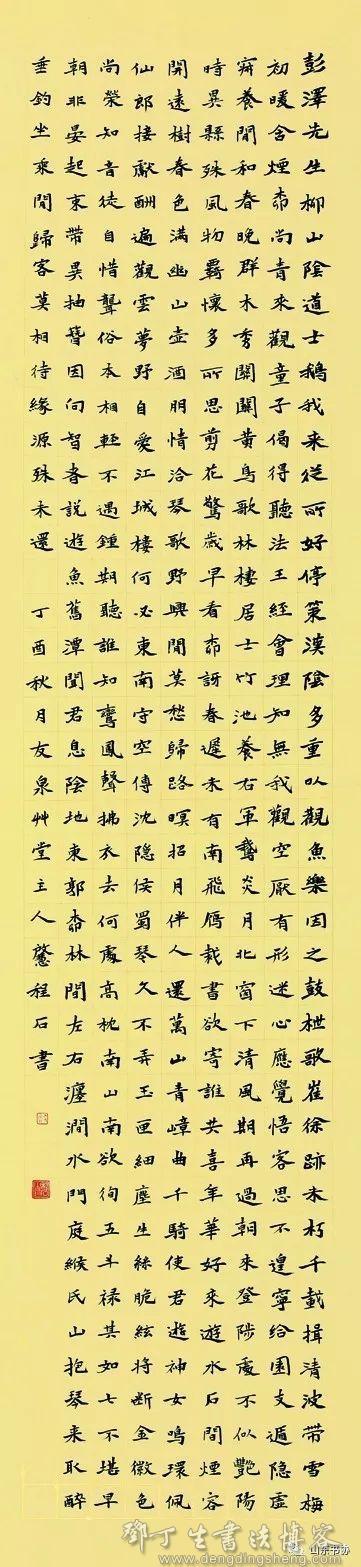 彭澤先生柳山陰道士鵝我来從所好停策漢陰多重以觀魚樂因之鼓枻歌崔徐跡未朽千載揖清波带雪梅
初暖含煙柳尚青來觀童子偈得聽法王經會理知無我觀空厭有形迷心應覺悟客思不遑寧給園支遁隱虛
寂養閒和春晚群木秀關關黃鳥歌林棲居士竹池養右軍鵞炎月北窗下清風期再過朝來登陟處不似艷陽
時異縣殊風物羈懷多所思剪花驚歲早看柳訝春遲未有南飛雁裁書欲寄誰共喜年華好來遊水石間煙容
開遠樹春色滿幽山壺酒朋情洽琴歌野興閒莫愁歸路暝招月伴人還萬山青嶂曲千騎使君遊神女鳴環佩
仙郎接獻酬遍觀雲夢野自愛江城樓何必東南守空傳沈隱侯蜀琴久不弄玉匣細塵生絲脆絃將断金徽色
尚榮知音徒自惜聾俗本相輕不遇鍾期聽誰知鸞鳳聲拂衣去何處高枕南山南欲徇五斗禄其如七不堪早
朝非晏起束带異抽簪因向智者說遊魚舊潭聞君息陰地東郭柳林間左右瀍澗水門庭緱氏山抱琴来取醉
垂釣坐乘閒歸客莫相待緣源殊未還 丁酉秋月友泉艸堂主人程石書
山东书协
鄧丁生書法博客
www.dengdingsheng.com